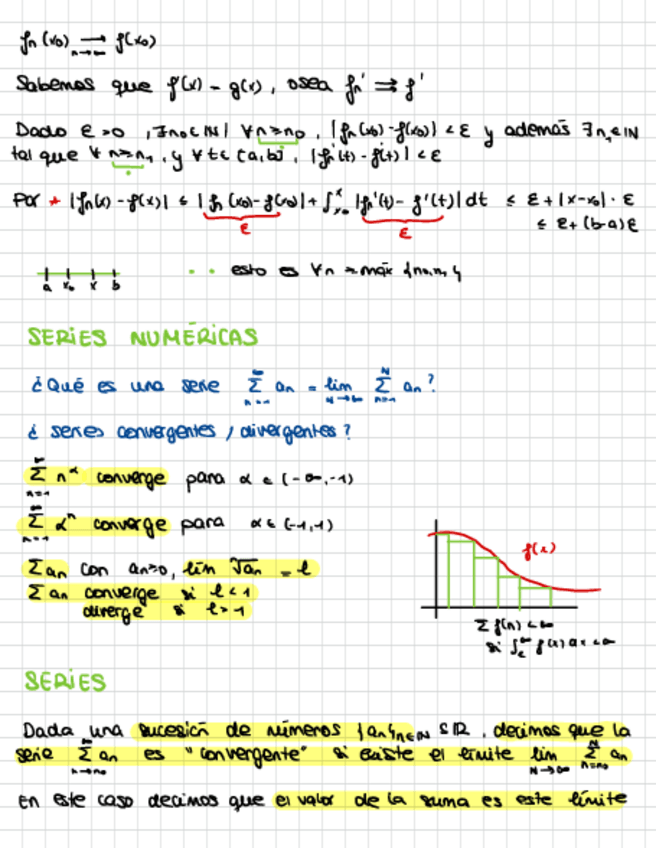 fn(x₀) ⟶ f(x₀)
n→∞
Sabemos que f'(x) = g(x), osea fn' ⇉ f'
Dado ε>0, ∃n₀∈ℕ | ∀n≥n₀, |fn(x₀)-f(x₀)| < ε y además ∃n₁∈ℕ
tal que ∀ n≥n₁, y ∀t∈[a,b], |fn'(t)-f'(t)| < ε
Por * |fn(x)-f(x)| ≤ |fn(x₀)-f(x₀)| + ∫ₓ₀ˣ |fn'(t)-f'(t)|dt ≤ ε+|x-x₀|·ε
ε ε ≤ ε+(b-a)ε
a x₀ x b
·· esto es ∀n ≥ máx {n₀,n₁}
SERIES NUMÉRICAS
¿Qué es una serie ∑ₙ₌₁^∞ an = lím_{N→∞} ∑ₙ₌₁^N an?
¿series convergentes / divergentes?
∑ₙ₌₁^∞ n^α converge para α ∈ (-∞,-1)
∑ₙ₌₁^∞ αⁿ converge para α∈(-1,1)
∑an con an>0, lím ⁿ√an = l
∑an converge si l<1
diverge si l>1
f(x)
∑ f(n) < ∞
si ∫_c^∞ f(x)dx < ∞
SERIES
Dada una sucesión de números {an}n∈ℕ ⊆ ℝ, decimos que la
serie ∑ₙ₌ₙ₀^∞ an es "convergente" si existe el límite lím_{N→∞} ∑ₙ₌ₙ₀^N an
en este caso decimos que el valor de la suma es este límite